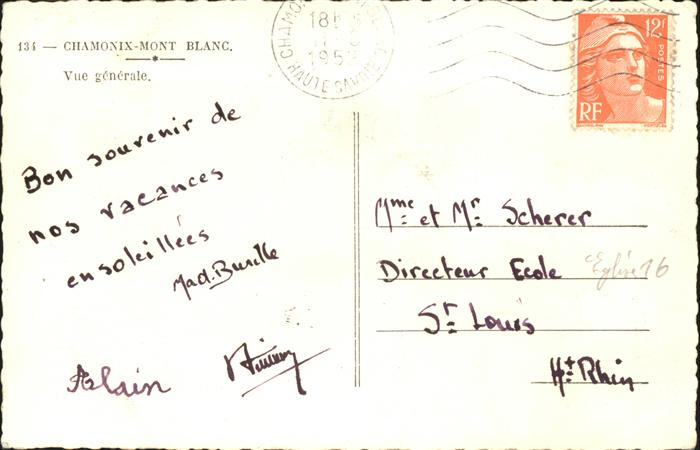 134 — CHAMONIX-MONT BLANC.
Vue générale.
CHAMONIX
18H
HAUTE SAVOIE
12F
POSTES
RF
Bon souvenir de
nos vacances
ensoleillées
Alain
Mme et Mr Scherer
Directeur Ecole Eglise 16
St Louis
Ht Rhin